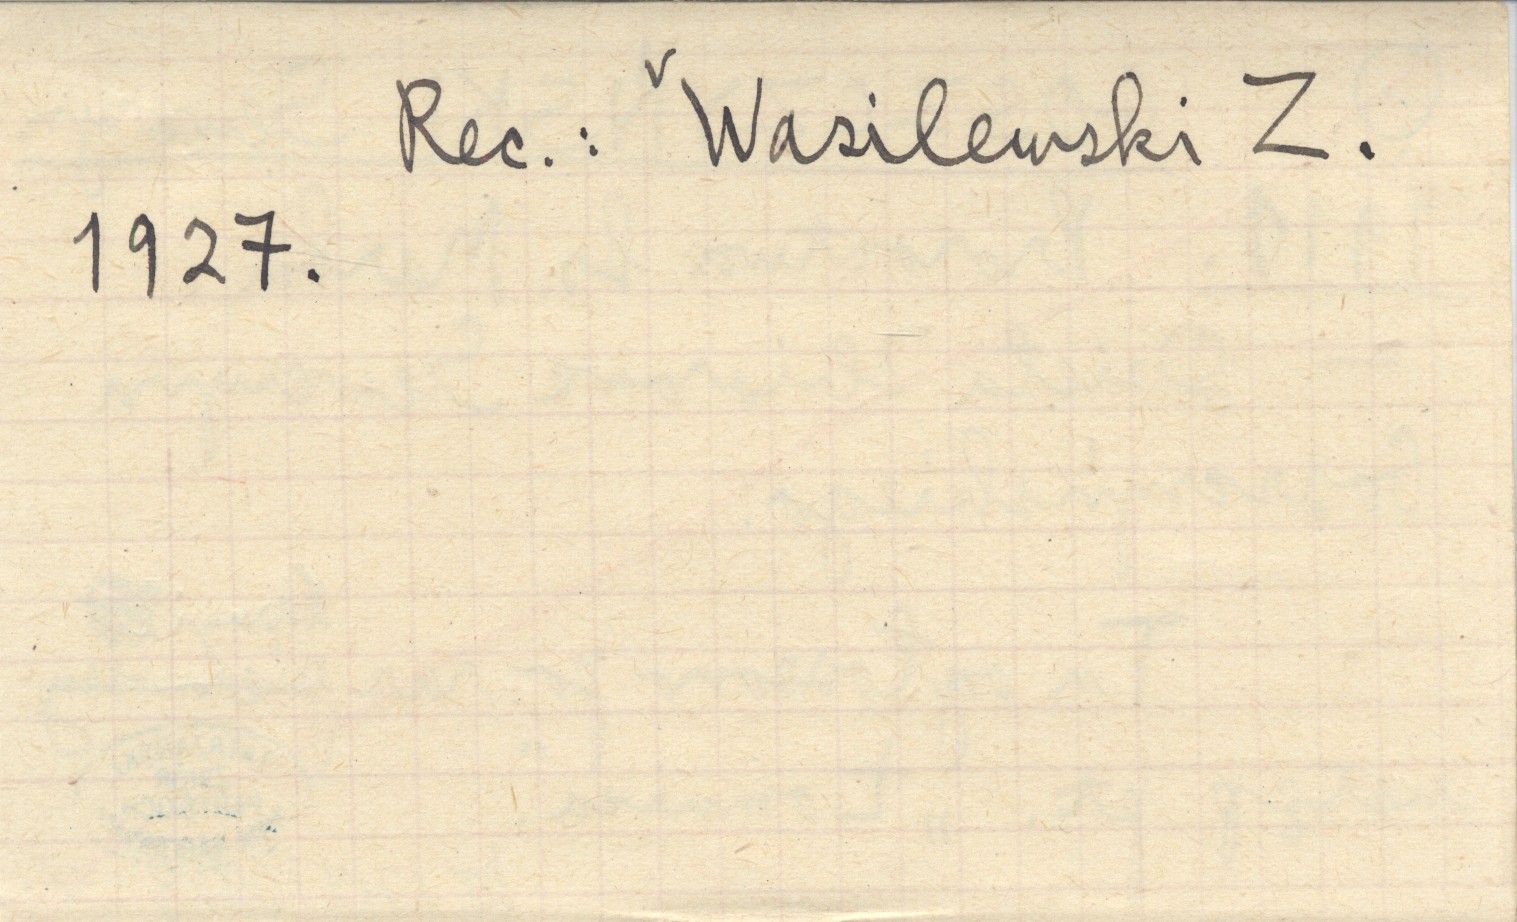 Rec.: ᵛWasilewski Z.
1927.